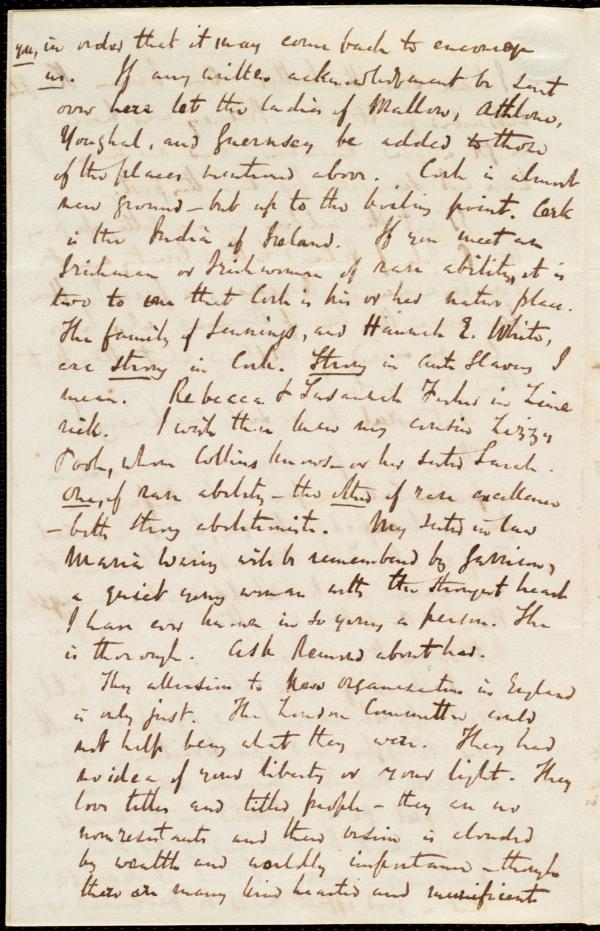 you, in order that it may come back to encourage
us. If any written acknowledgement be sent
over here let the ladies of Mallow, Athlone,
Youghal, and Guernsey be added to those
of the places mentioned above. Cork is almost
new ground – but up to the boiling point. Cork
is the India of Ireland. If you meet an
Irishman or Irishwoman of rare ability, it is
two to one that Cork is his or her native place.
The family of Jennings, and Hannah E. White,
are strong in Cork. Strong in anti Slavery I
mean. Rebecca & Susannah Fisher in Lime
rick. I wish thee knew my cousin Lizzy
Poole, whom Collins knows – or her sister Sarah.
One, of rare ability – the other of rare excellence
– both strong abolitionists. My sister in law
Maria Waring will be remembered by Garrison,
a quiet young woman with the strongest head
I have ever known in so young a person. She
is thorough. Ask Remond about her.
Thy allusion to New organisation in England
is only just. The London Committee could
not help being what they were. They had
no idea of your liberty or your light. They
love titles and titled people – they are no
nonresistants and their vision is clouded
by wealth and worldly importance – though
there are many kind hearted and munificent